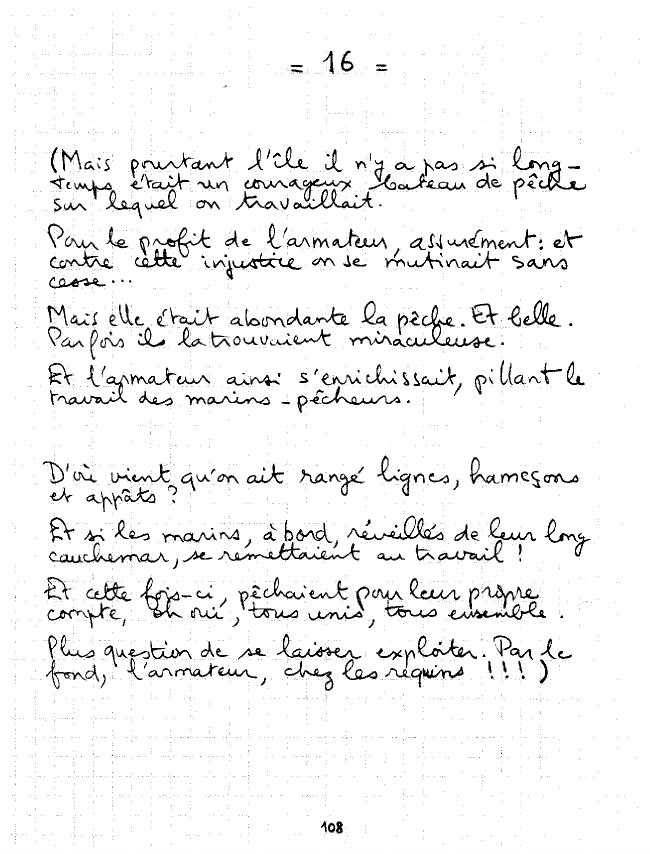 = 16 =
(Mais pourtant l'île il n'y a pas si long-
temps était un courageux bateau de pêche
sur lequel on travaillait.
Pour le profit de l'armateur, assurément : et
contre cette injustice on se mutinait sans
cesse...
Mais elle était abondante la pêche. Et belle.
Parfois ils la trouvaient miraculeuse.
Et l'armateur ainsi s'enrichissait, pillant le
travail des marins-pêcheurs.
D'où vient qu'on ait rangé lignes, hameçons
et appâts ?
Et si les marins, à bord, réveillés de leur long
cauchemar, se remettaient au travail !
Et cette fois-ci, pêchaient pour leur propre
compte, oh oui, tous unis, tous ensemble.
Plus question de se laisser exploiter. Par le
fond, l'armateur, chez les requins !!!)
108